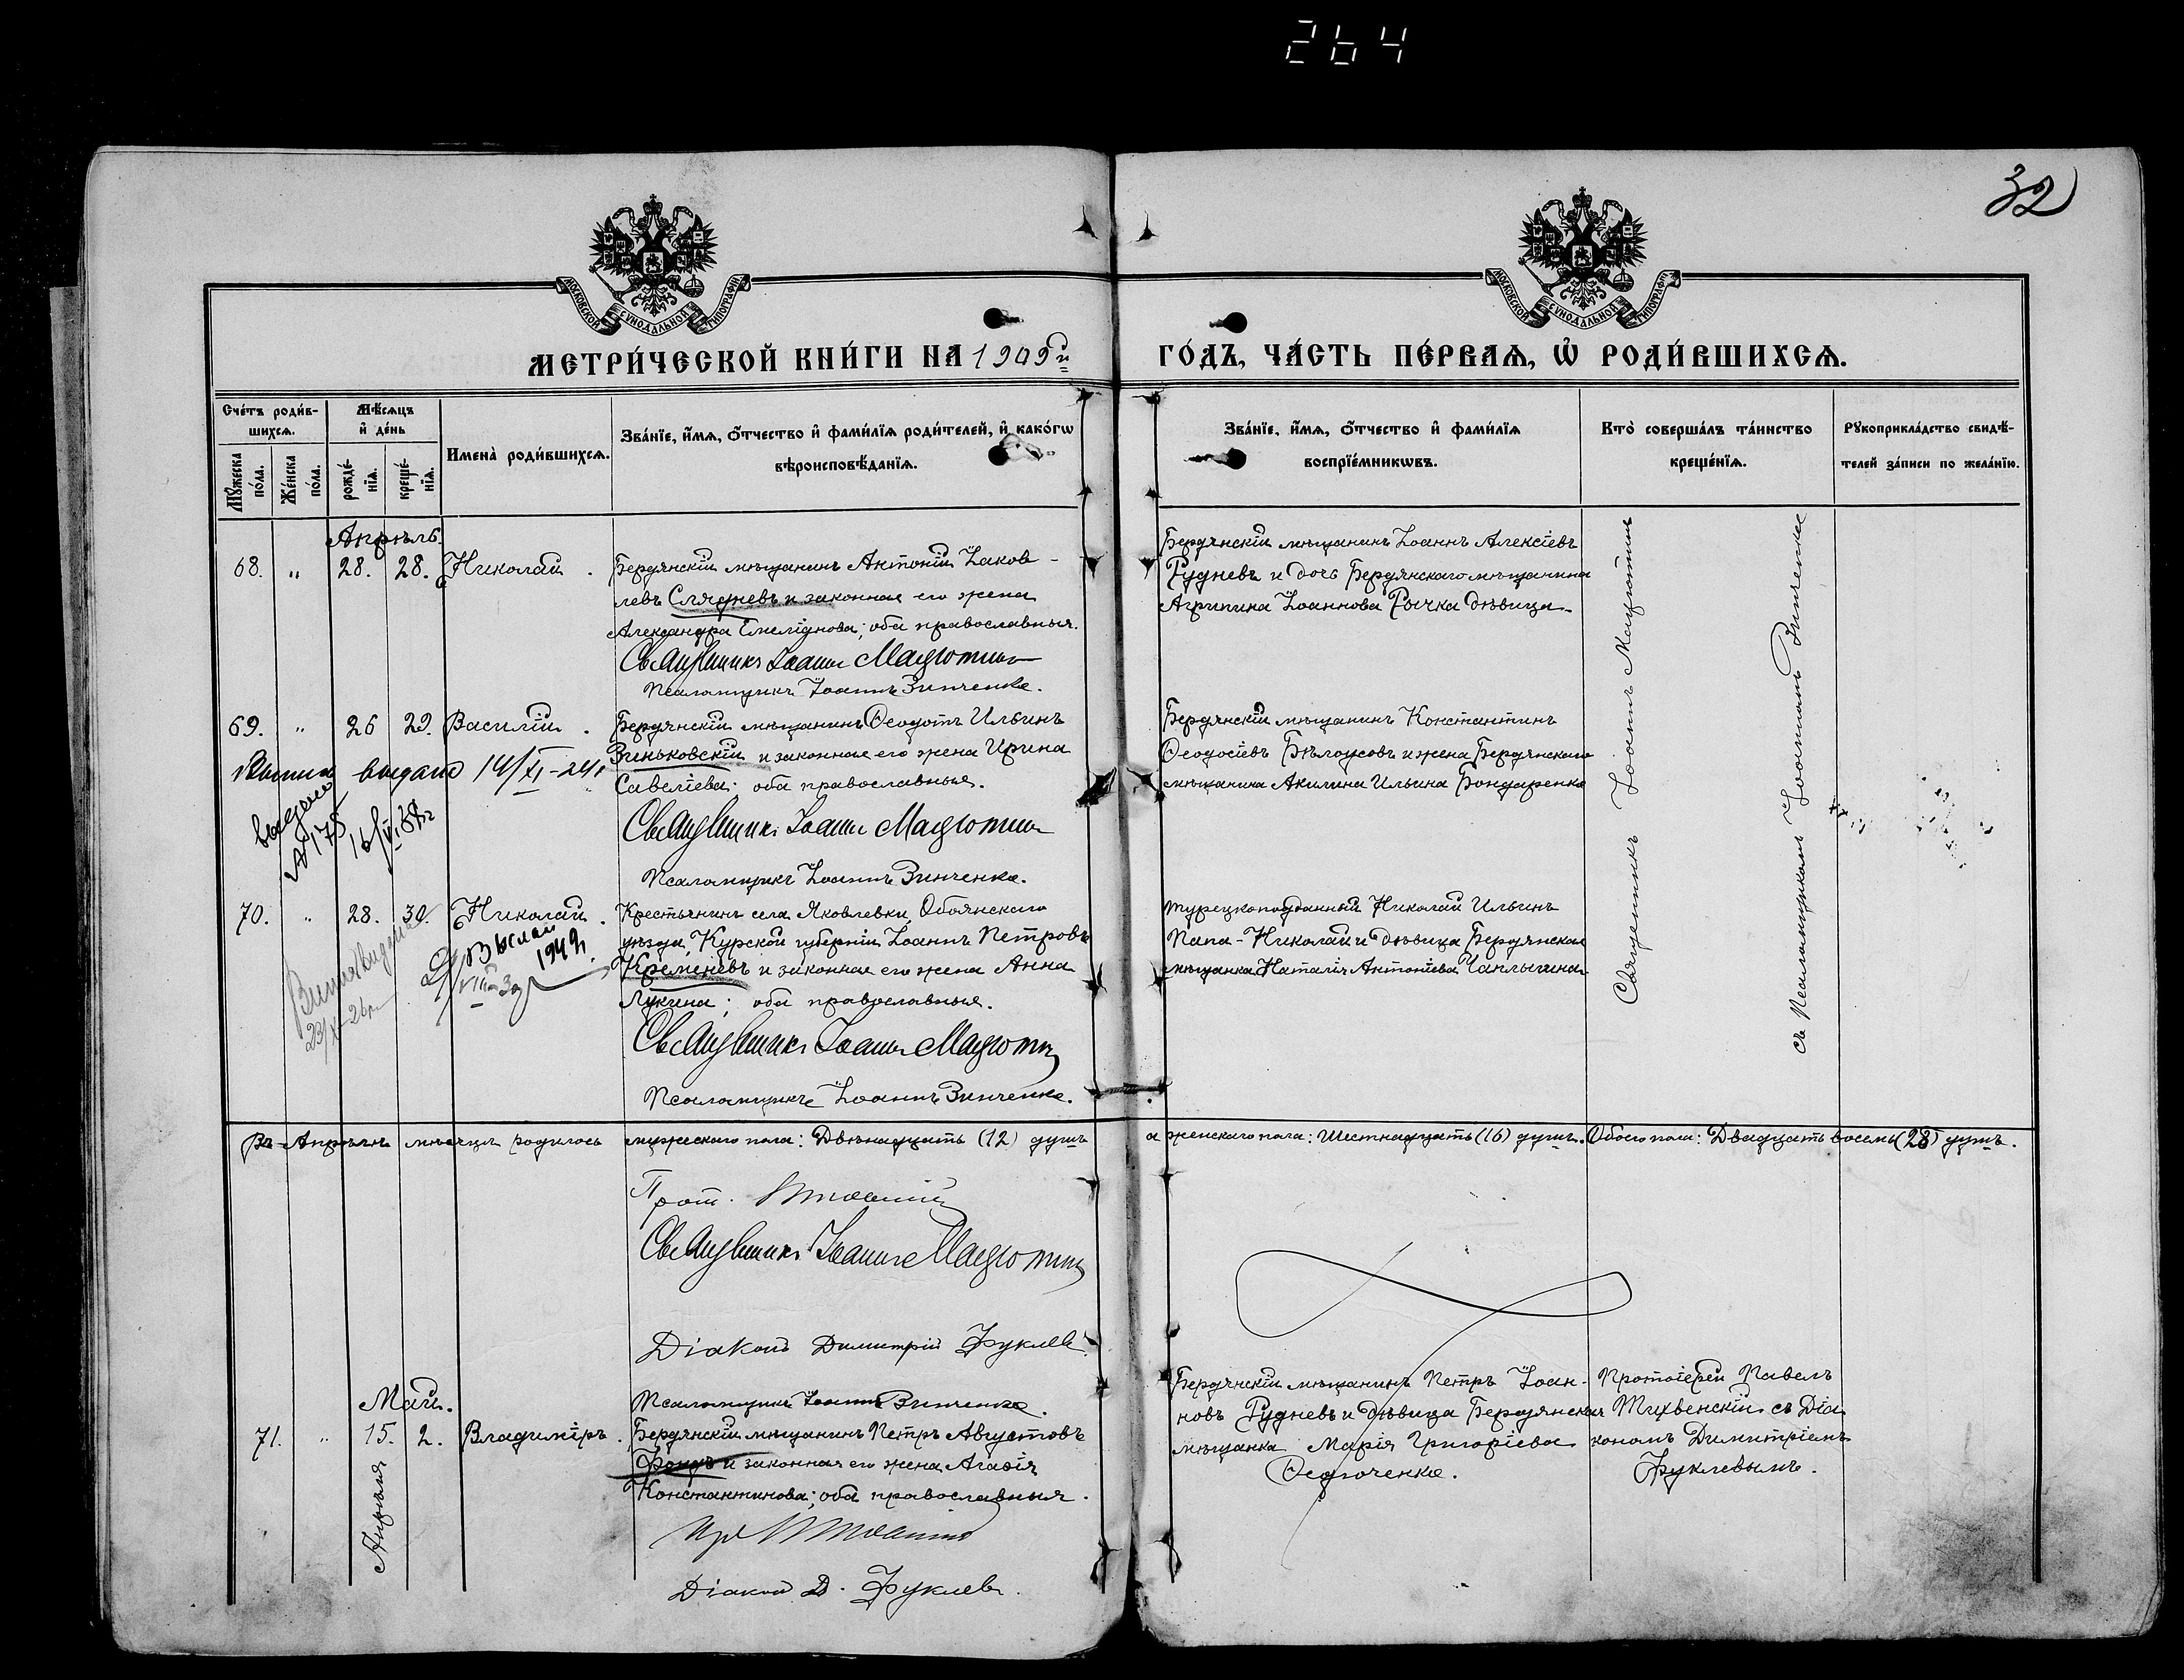 264
32
МОСКОВСКОЙ СѴНОДАЛЬНОЙ ТИПОГРАФІИ
МОСКОВСКОЙ СѴНОДАЛЬНОЙ ТИПОГРАФІИ
МЕТРИ́ЧЕСКОЙ КНИ́ГИ НА 1909й
ГО́ДЪ, ЧА́СТЬ ПЕ́РВАѦ, Ѡ҆ РОДИ́ВШИХСѦ.
Сче́тъ роди́в-
шихсѧ.
Мѣ́сѧцъ
и҆ де́нь
Мꙋ́жеска
по́ла.
Же́нска
по́ла.
рожде́-
нїѧ.
креще́-
нїѧ.
Имена̀ роди́вшихсѧ.
Зва́нїе, и҆́мѧ, ѻ҆́тчество и҆ фами́лїѧ роди́телей, и҆ како́гѡ
вѣроисповѣ́данїѧ.
Зва́нїе, и҆́мѧ, ѻ҆́тчество и҆ фами́лїѧ
воспрїе́мникѡвъ.
Кто̀ соверша́лъ та́инство
креще́нїѧ.
Рꙋкоприкла́дство свидѣ́-
телей за́писи по жела́нїю.
Апрѣль.
68. " 28. 28. Николай.
Бердянскій мѣщанинъ Антоній Іаков-
левъ Слядневъ и законная его жена
Александра Емеліянова; оба православныя.
Священникъ Іоаннъ Мацютинъ
Псаломщикъ Іоаннъ Зинченко.
Бердянскій мѣщанинъ Іоаннъ Алексіевъ
Рудневъ и дочь Бердянскаго мѣщанина
Агрипина Іоаннова Рычка дѣвица
Священникъ Іоаннъ Мацютинъ
съ Псаломщикомъ Іоанномъ Зинченко
69. " 26 29. Василій.
Выпись выдана 14/XI-24г
выдано
№175
16/VI.38г
Бердянскій мѣщанинъ Ѳеодотъ Ильинъ
Зиньковскій и законная его жена Ирина
Савеліева; оба православныя.
Священникъ Іоаннъ Мацютинъ
Псаломщикъ Іоаннъ Зинченко.
Бердянскій мѣщанинъ Константинъ
Ѳеодосіевъ Бѣлоусовъ и жена Бердянскаго
мѣщанина Акилина Ильина Бондаренко
70. " 28. 30. Николай.
23/X-26г
1942г.
Крестьянинъ села Яковлевки, Обоянскаго
уѣзда, Курской губерніи Іоаннъ Петровъ
Кременевъ и законная его жена Анна
Лукина; оба православныя.
Священникъ Іоаннъ Мацютинъ
Псаломщикъ Іоаннъ Зинченко.
турецкоподданный Николай Ильинъ
Папа-Николаи и дѣвица Бердянская
мѣщанка Наталія Антоніева Чаплыгина
Въ Апрѣлѣ мѣсяцѣ родилось мужескаго пола: Двѣнадцать (12) душъ
а женскаго пола: Шестнадцать (16) душъ. Обоего пола: Двадцать восемь (28) душъ.
Прот.
Священникъ Іоаннъ Мацютинъ
Діаконъ Димитрій Фуклевъ
Псаломщикъ Іоаннъ Зинченко.
Май.
71. " 15. 2. Владиміръ.
Апрѣля
Бердянскій мѣщанинъ Петръ Августовъ
и законная его жена Агаѳія
Константинова; оба православныя.
Діаконъ Д. Фуклевъ.
Бердянскій мѣщанинъ Петръ Іоан-
новъ Рудневъ и дѣвица Бердянская
мѣщанка Марія Григоріева
Ѳедюченко.
Протоіерей Павелъ
Тихвенскій съ Діа
кономъ Димитріемъ
Фуклевымъ.